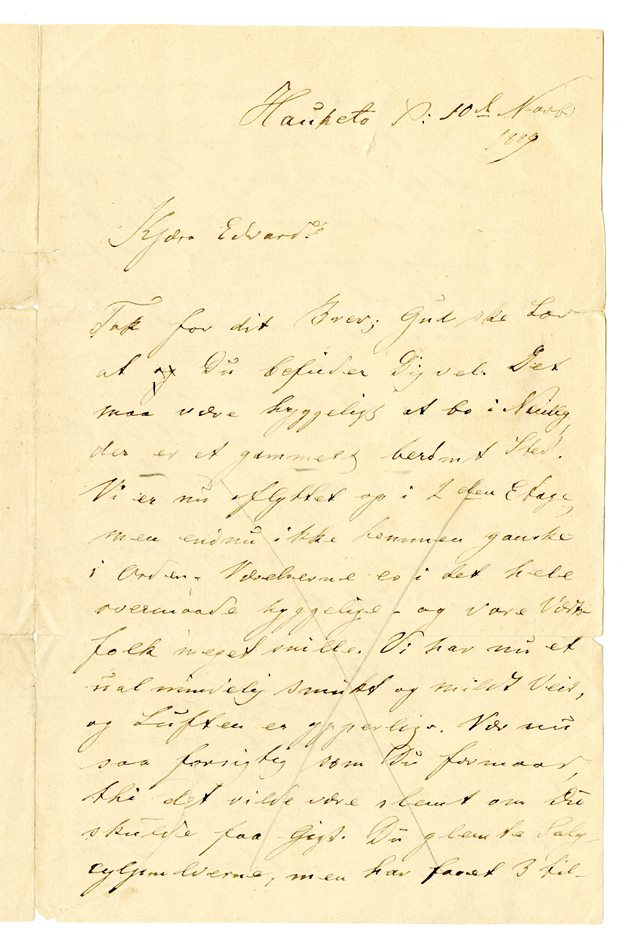 Hauketo St: 10d Novbr
1889
Kjære Edvard!
Tak for dit Brev; Gud ske Lov
at og Du befinder Dig vel. Det
maa være hyggeligt at bo i Neuilly,
der er et gammelt berømt Sted.
Vi er nu oflyttet op i 2 den Etage,
men endnu ikke kommen ganske
i Orden. Værelserne er i det hele
overmaade hyggelige - og vore Værts-
folk meget snille. Vi har nu et
ualmindelig smukt og mildt Veir,
og Luften er ypperlig. Vær nu
saa forsigtig som Du formaar,
thi det vilde være slemt om Du
skulde faa Gigt. Du glemte Salycylpulverne, men har faaet 3 til-